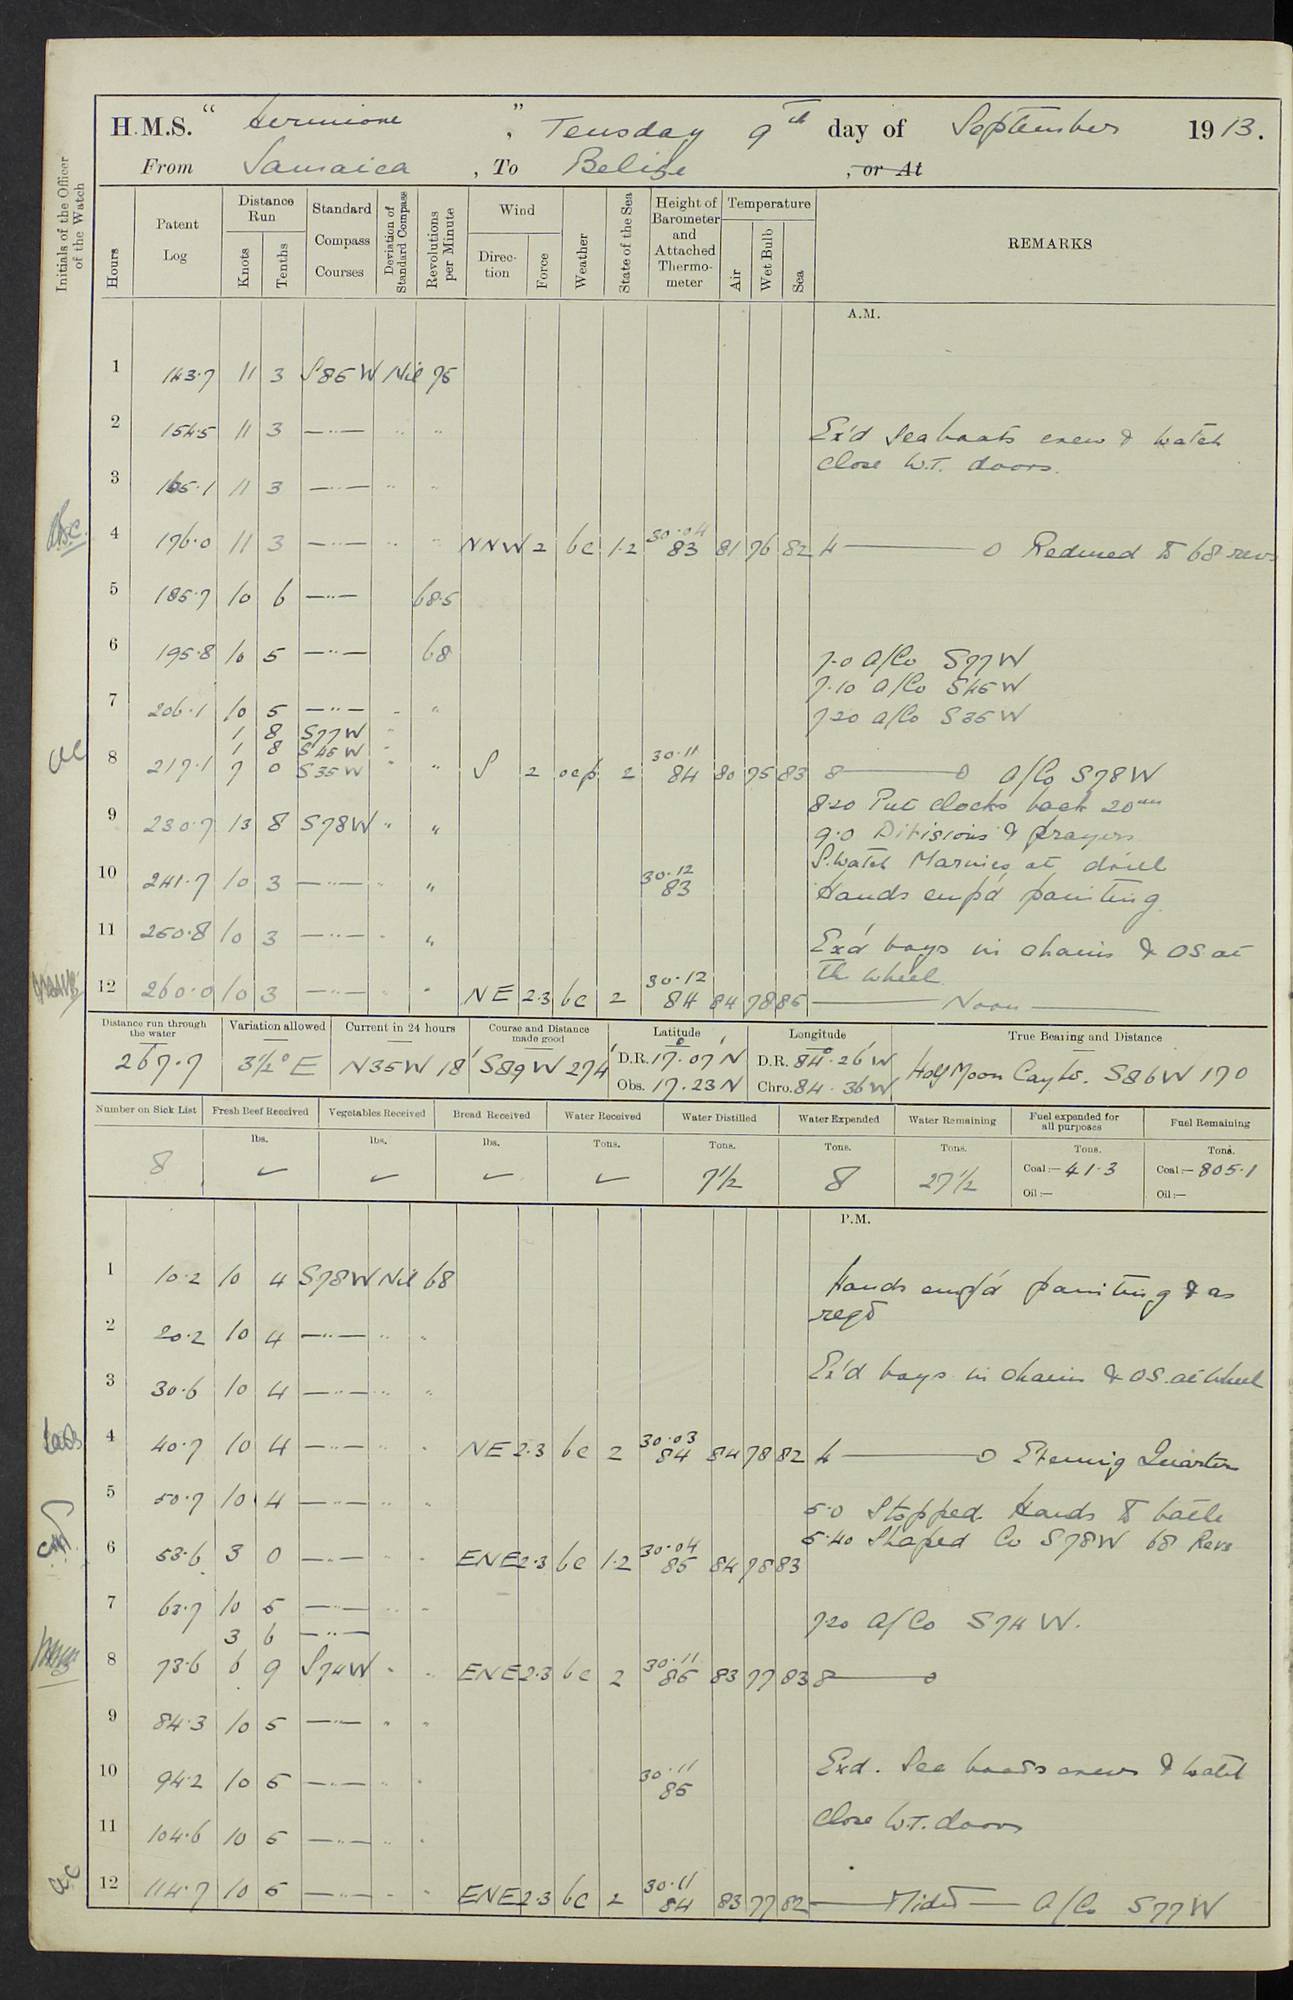 H.M.S. "Hermione", Teusday 9th day of September 1913.
From Jamaica, To Belize, or At
Initials of the Officer of the Watch
Hours
Patent Log
Distance Run
Knots
Tenths
Standard Compass Courses
Deviation of Standard Compass
Revolutions per Minute
Wind
Direction
Force
Weather
State of the Sea
Height of Barometer and Attached Thermometer
Temperature
Air
Wet Bulb
Sea
REMARKS
A.M.
1 143.7 11 3 S85W Nil 75
2 154.5 11 3 —"— " " Ex'd Sea boats crew & watch
close W.T. doors.
3 165.1 11 3 —"— " "
4 176.0 11 3 —"— " " NNW 2 bc 1.2 30.04 83 81 76 82 4———0 Reduced to 68 revs
5 185.7 10 6 —"— 68.5
6 195.8 10 5 —"— 68 7.0 A/Co S77W
7.10 A/Co S45W
7 206.1 10 5 —"— " " 7.20 A/Co S35W
1 8 S77W "
1 8 S45W "
8 217.1 7 0 S35W " " S 2 ocp 2 30.11 84 80 75 83 8———0 A/Co S78W
8.20 Put clocks back 20 min
9 230.7 13 8 S78W " " 9.0 Divisions & prayers
S. Watch Marines at drill
10 241.7 10 3 —"— " " 30.12 83 Hands emp'd painting
11 250.8 10 3 —"— " " Ex'd boys in chains & OS at
the wheel
12 260.0 10 3 —"— " " NE 2.3 bc 2 30.12 84 84 78 85 ——— Noon ———
Distance run through the water
267.7
Variation allowed
3½° E
Current in 24 hours
N35W 18'
Course and Distance made good
S89W 274'
Latitude
D.R. 17°.07'N
Obs. 17.23N
Longitude
D.R. 84°.26'W
Chro. 84.36W
True Bearing and Distance
Half Moon Cay Lt. S86W 170
Number on Sick List
8
Fresh Beef Received
lbs.
✓
Vegetables Received
lbs.
✓
Bread Received
lbs.
✓
Water Received
Tons.
✓
Water Distilled
Tons.
7½
Water Expended
Tons.
8
Water Remaining
Tons.
27½
Fuel expended for all purposes
Tons.
Coal:— 41.3
Oil:—
Fuel Remaining
Tons.
Coal:— 805.1
Oil:—
P.M.
1 10.2 10 4 S78W Nil 68 Hands emp'd painting & as
reqd
2 20.2 10 4 —"— " "
3 30.6 10 4 —"— " " Ex'd boys in chains & OS. at wheel
4 40.7 10 4 —"— " " NE 2.3 bc 2 30.03 84 84 78 82 4———0 Evening Quarters
5 50.7 10 4 —"— " " 5.0 Stopped. Hands to bathe
5.40 Shaped Co S78W 68 Revs
6 53.6 3 0 —"— " " ENE 2.3 bc 1.2 30.04 85 84 78 83
7 63.7 10 5 —"— " " 7.20 A/Co S74W.
3 6 —"—
8 73.6 6 9 S74W " " ENE 2.3 bc 2 30.11 85 83 77 83 8———0
9 84.3 10 5 —"— " "
10 94.2 10 5 —"— " " 30.11 85 Exd. Sea boats crews & watch
close W.T. doors
11 104.6 10 5 —"— " "
12 114.7 10 5 —"— " " ENE 2.3 bc 2 30.11 84 83 77 82 ——— Midt ——— A/Co S77W